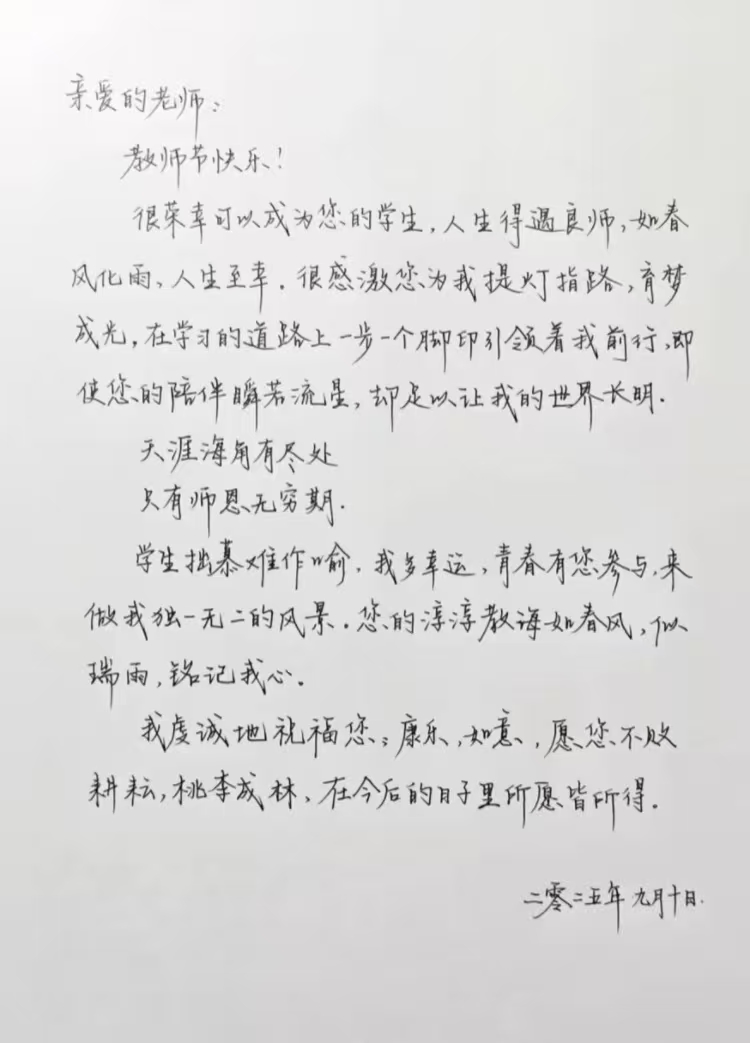 亲爱的老师：
教师节快乐！
很荣幸可以成为您的学生，人生得遇良师，如春
风化雨，人生至幸．很感激您为我提灯指路，育梦
成光，在学习的道路上一步一个脚印引领着我前行，即
使您的陪伴瞬若流星，却足以让我的世界长明．
天涯海角有尽处
只有师恩无穷期．
学生拙慕难作喻．我多幸运，青春有您参与，来
做我独一无二的风景．您的淳淳教诲如春风，似
瑞雨，铭记我心。
我虔诚地祝福您：康乐，如意，愿您不败
耕耘，桃李成林，在今后的日子里所愿皆所得．
二零二五年九月十日．